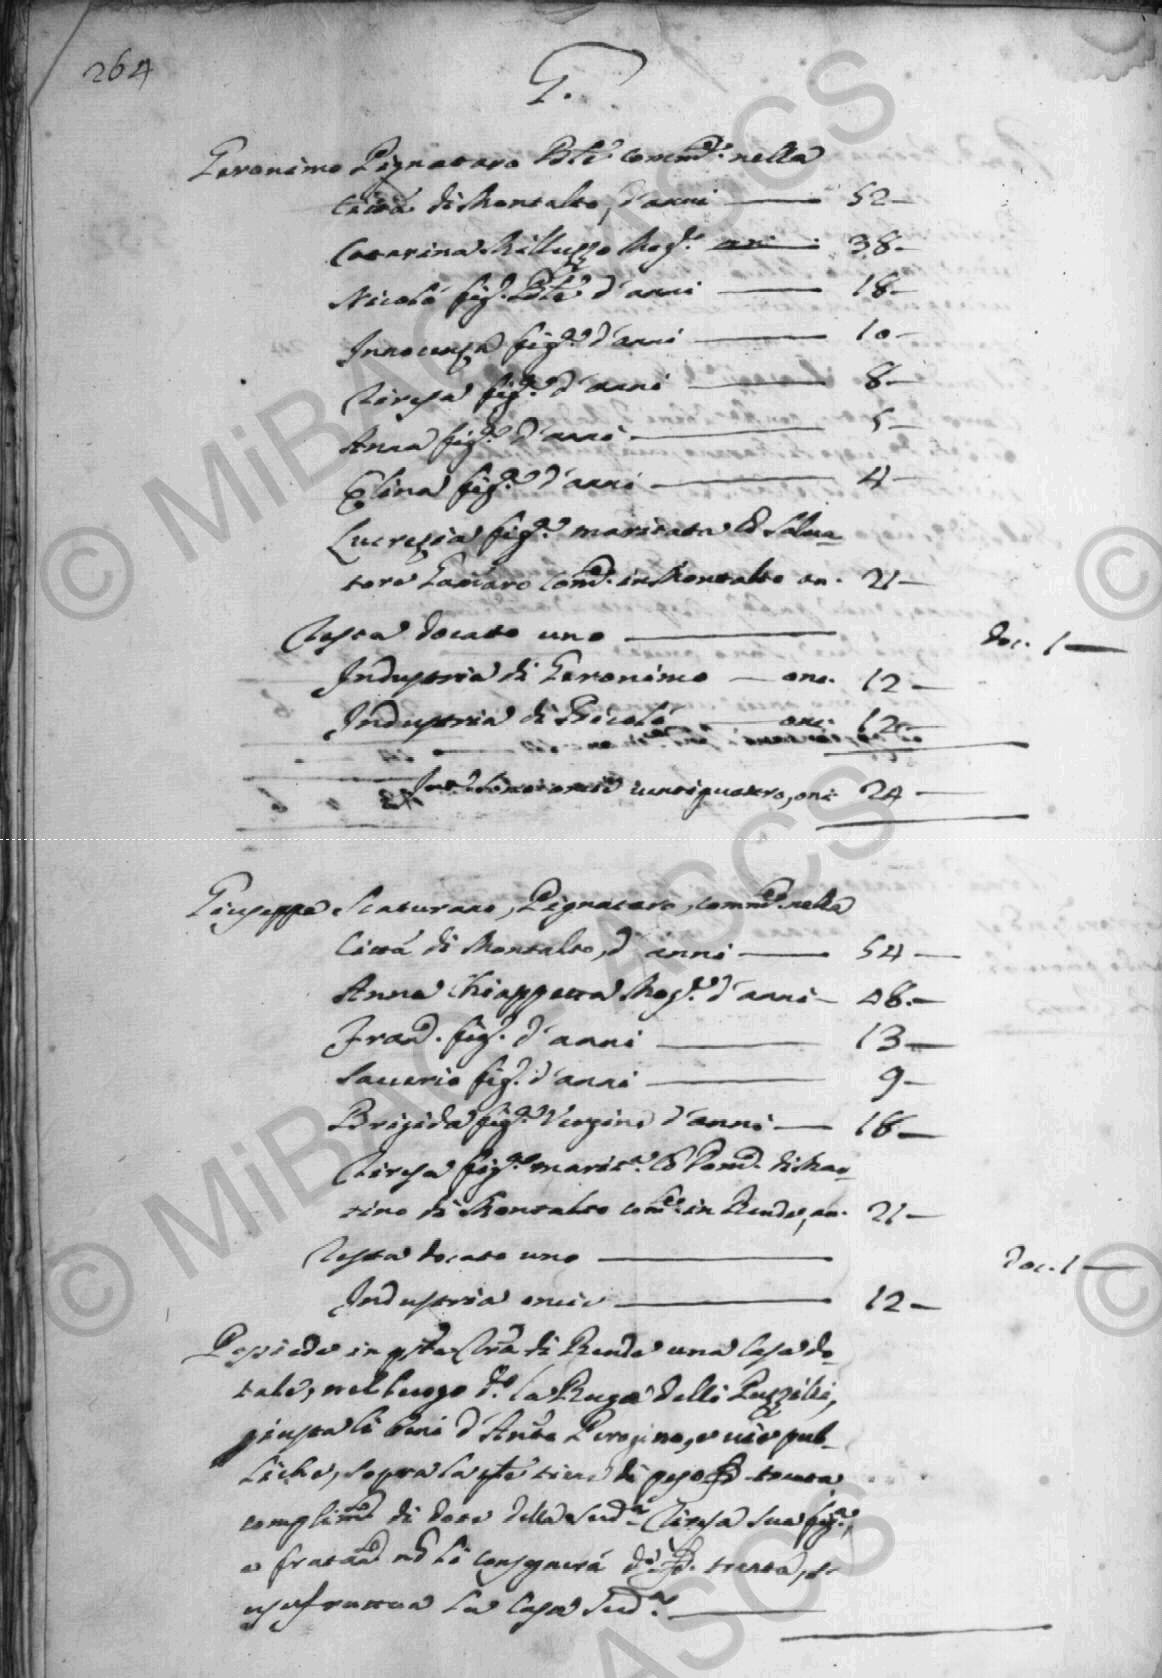 264
G.
Geronimo Pignataro commte. nella
Città di Montalto, d'anni — 52 —
Catarina Milluzzo Mog.e an: — 38 —
Nicolò fig.o d'anni — 18 —
Innocenza fig.a d'anni — 10 —
Tiresa fig.a d'anni — 8 —
Anna fig.a d'anni — 5 —
Elina fig.a d'anni — 4 —
Lucrezia fig.a maritata Salva-
tore comte. in Montalto an. 21 —
Testa docato uno — doc. 1 —
Industria di Geronimo — onc. 12 —
Industria di Nicolò — onc. 12 —
Sono oncie ventiquattro, onc: 24 —
Giuseppe Scaturano, Pignataro, commte. nella
Città di Montalto, d'anni — 54 —
Anna Chiappetta Mog.e d'anni — 48 —
Fran.co fig.o d'anni — 13 —
Saverio fig.o d'anni — 9 —
Brigida fig.a Vergine d'anni — 18 —
Tiresa fig.a marit.a di Mar-
tino di Montalto comte. in Rende, an. 21 —
Testa docato uno — doc. 1 —
Industria oncie — 12 —
Possiede in q.sta T.ra di Rende una Casa do-
tale, nel luogo d.o la Ruga delli
giusta li beni d' e vie pub-
liche, sopra la q.le tiene di peso trenta
complim.to di dote della sud.a Tiresa sua fig.a,
e frattanto li consegnerà trenta, si
usufruttua la Casa sud.a —
© MiBAC - ASCS
© MiBAC - ASCS
© MiBAC - ASCS
©
©